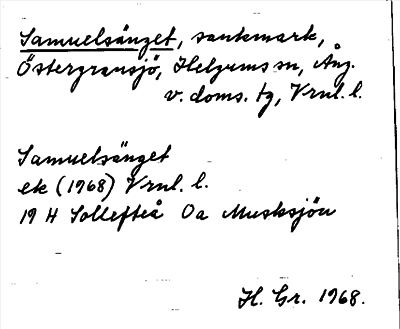 Samuelsänget, sankmark,
Östergransjö, Helgums sn, Ång.
v. doms. tg, Vrnl. l.
Samuelsänget
ek (1968) Vrnl. l.
19 H Sollefteå Oa Musksjön
H. Gr. 1968.